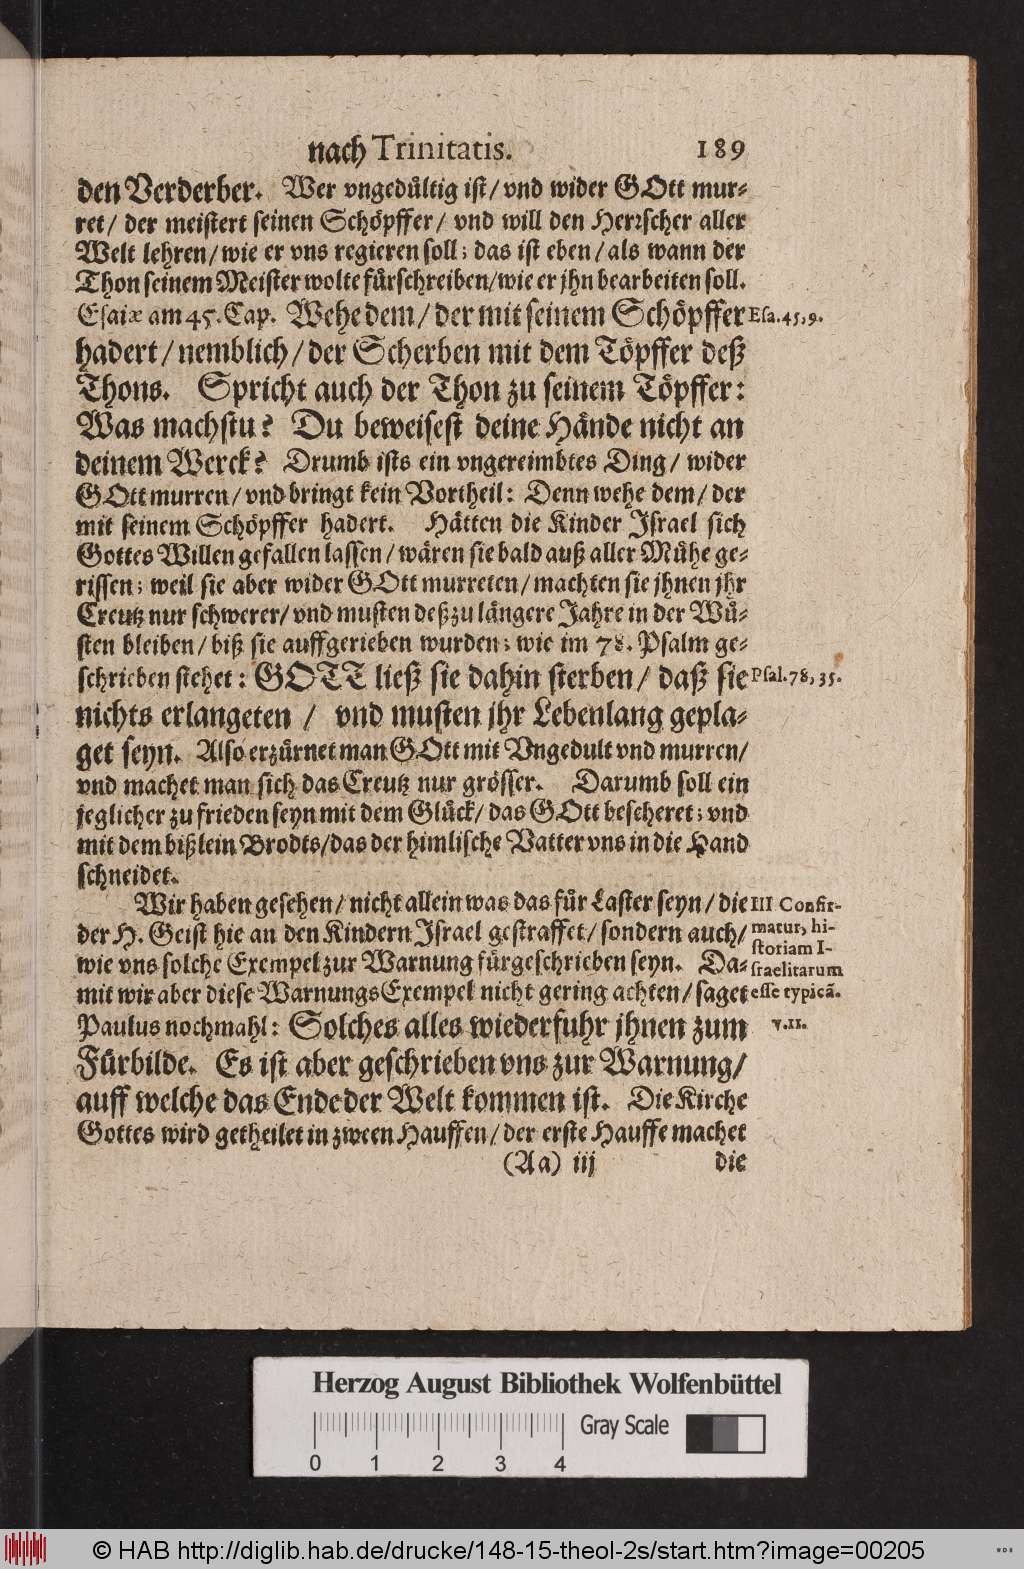 nach Trinitatis. 189
den Verderber. Wer vngedültig ist/ vnd wider GOtt mur-
ret/ der meistert seinen Schöpffer/ vnd will den Herrscher aller
Welt lehren/ wie er vns regieren soll; das ist eben/ als wann der
Thon seinem Meister wolte fürschreiben/ wie er jhn bearbeiten soll.
Esaiæ am 45. Cap. Wehe dem/ der mit seinem Schöpffer Esa. 45, 9.
hadert/ nemblich/ der Scherben mit dem Töpffer deß
Thons. Spricht auch der Thon zu seinem Töpffer:
Was machstu? Du beweisest deine Hände nicht an
deinem Werck? Drumb ists ein vngereimbtes Ding/ wider
GOtt murren/ vnd bringt kein Vortheil: Denn wehe dem/ der
mit seinem Schöpffer hadert. Hätten die Kinder Israel sich
Gottes Willen gefallen lassen/ wären sie bald auß aller Mühe ge-
rissen; weil sie aber wider GOtt murreten/ machten sie jhnen jhr
Creutz nur schwerer/ vnd musten deß zu längere Jahre in der Wü-
sten bleiben/ biß sie auffgerieben wurden; wie im 78. Psalm ge-
schrieben stehet: GOTT ließ sie dahin sterben/ daß sie Psal. 78, 35.
nichts erlangeten / vnd musten jhr Lebenlang gepla-
get seyn. Also erzürnet man GOtt mit Vngedult vnd murren/
vnd machet man sich das Creutz nur grösser. Darumb soll ein
jeglicher zu frieden seyn mit dem Glück/ das GOtt bescheret; vnd
mit dem bißlein Brodts/ das der himlische Vatter vns in die Hand
schneidet.
Wir haben gesehen/ nicht allein was das für Laster seyn/ die III Confir-
der H. Geist hie an den Kindern Israel gestraffet/ sondern auch/ matur, hi-
storiam I-
wie vns solche Exempel zur Warnung fürgeschrieben seyn. Da- sraelitarum
mit wir aber diese Warnungs Exempel nicht gering achten/ saget esse typicã.
Paulus nochmahl: Solches alles wiederfuhr jhnen zum v. 11.
Fürbilde. Es ist aber geschrieben vns zur Warnung/
auff welche das Ende der Welt kommen ist. Die Kirche
Gottes wird getheilet in zween Hauffen/ der erste Hauffe machet
(Aa) iij die
Herzog August Bibliothek Wolfenbüttel
Gray Scale
0 1 2 3 4
© HAB http://diglib.hab.de/drucke/148-15-theol-2s/start.htm?image=00205